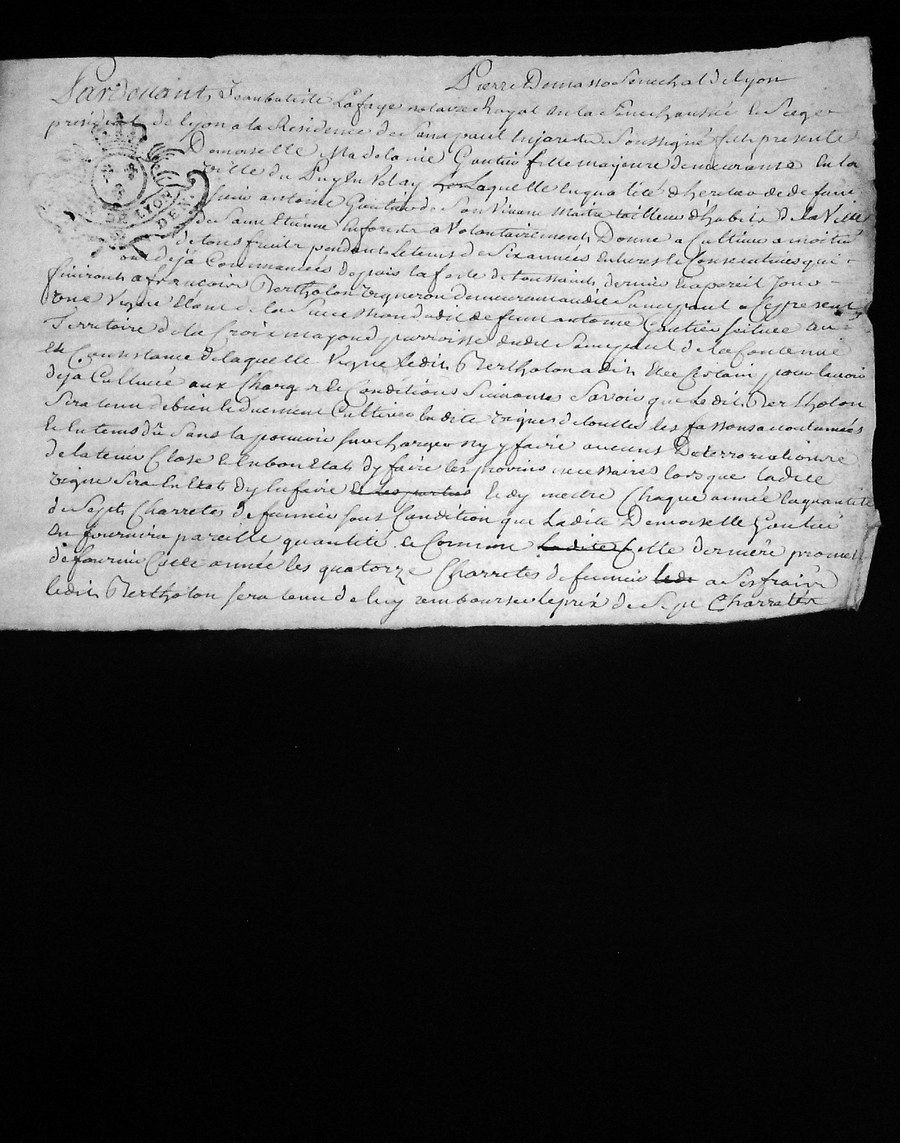 Pierre Demasso Senechal de lyon
Pardevant, Jeanbatiste Lafaye notaire Royal en la Sénéchaussée & Siege
presidial de lyon a la Residence de Saint paul En jarest Soussigné fut presente
Demoiselle Madelainne Gautier fille majeure demeurante En la
Ville du Puy En Velay laquelle En qualité d'heritiere de feu
Sieur antoine Gautier de Son Vivant Maitre tailleur d'habits de la Ville
de Saint Etienne En forest a Volontairement Donné a Culture a moitié
de tous fruits pendant le tems de Six années Entieres & Consecutives qui
ont déja Commancées depuis la fete de toussaints dernier Et a pareil jour
finiront a francois Bertholon Vigneron demeurant audit Saint paul a Ce present
une Vigne Etant de la Succession dudit defunt antoine Gautier Située au
Territoire de la Croix parroisse dudit Saint paul
Et Consistance de laquelle Vigne ledit Bertholon a dit Etre Certain pour l'avoir
déja Cultivée aux Charges & Conditions Suivantes Savoir que Ledit Bertholon
Sera tenu de bien & duement Cultiver ladite Vigne de toutes les fassons accoutumées
& En tems dû Sans la pouvoir Surcharger ny y faire aucune Deterrioration
de la tenir Close & En bon Etat d'y faire les provins necessaires lorsque ladite
Vigne Sera En Etat d'y En faire & d'y mettre Chaque année la quantité
de Sept Charretes de fumier sous Condition que Ladite Demoiselle Gautier
En fournira pareille quantité Cette derniere promet
de fournir Cette année les quatorze Charretes de fumier a Ses fraix
ledit Bertholon Sera tenu de luy rembourser le prix de Sept Charretes
DE LYON
DEN